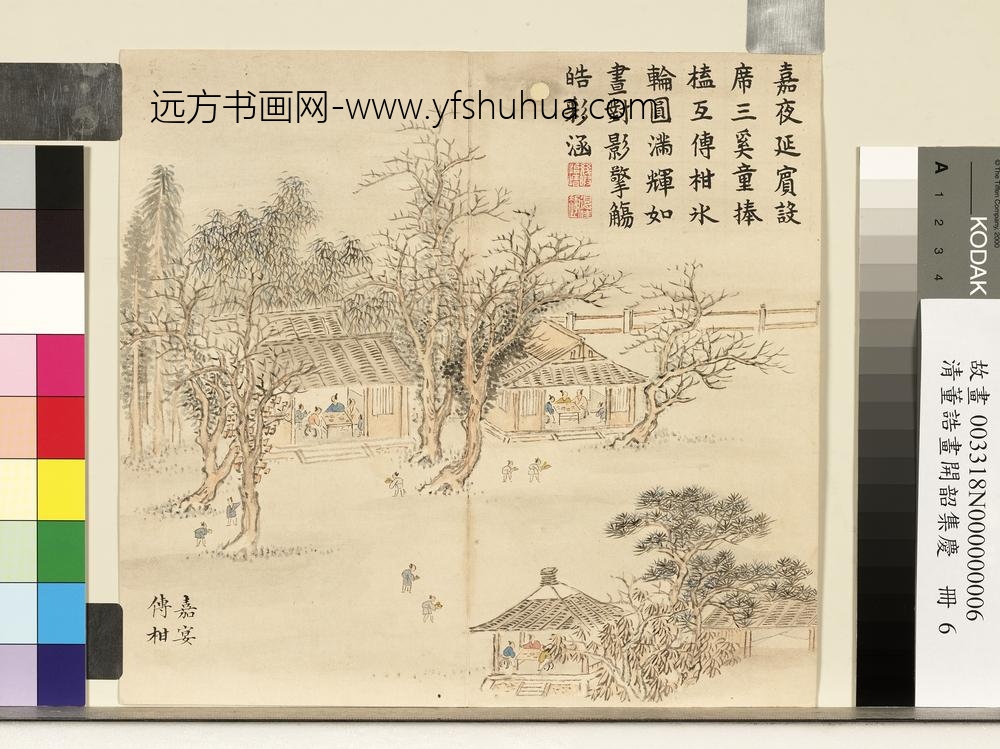 远方书画网-www.yfshuhua.com
嘉夜延賓設
席三奚童捧
榼互傳柑氷
輪圓滿輝如
晝對影擎觴
皓彩涵
嘉宴
傳柑
KODAK
A 1 2 3 4
故畫 003318N000000006
清董誥畫開韶集慶 冊 6